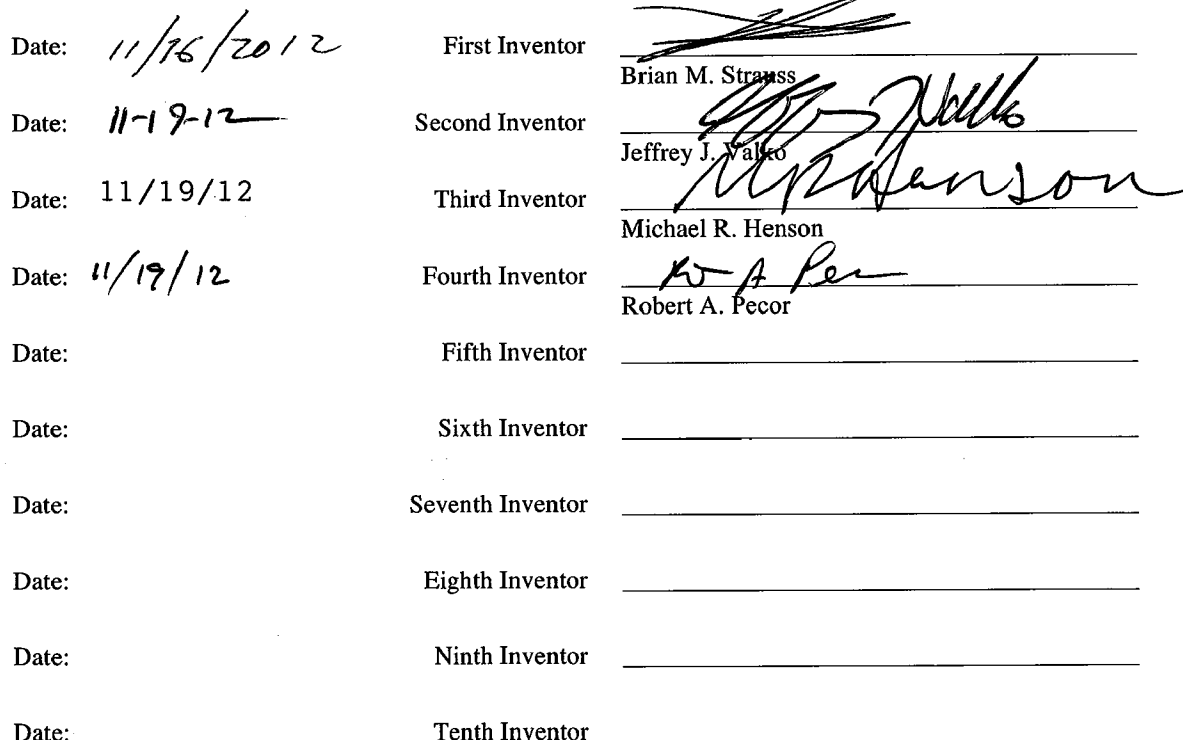 Date: 11/16/2012 First Inventor
Brian M. Strauss
Date: 11-19-12 Second Inventor Valko
Jeffrey J. Valko
Date: 11/19/12 Third Inventor MRHenson
Michael R. Henson
Date: 11/19/12 Fourth Inventor
Robert A. Pecor
Date: Fifth Inventor
Date: Sixth Inventor
Date: Seventh Inventor
Date: Eighth Inventor
Date: Ninth Inventor
Date: Tenth Inventor